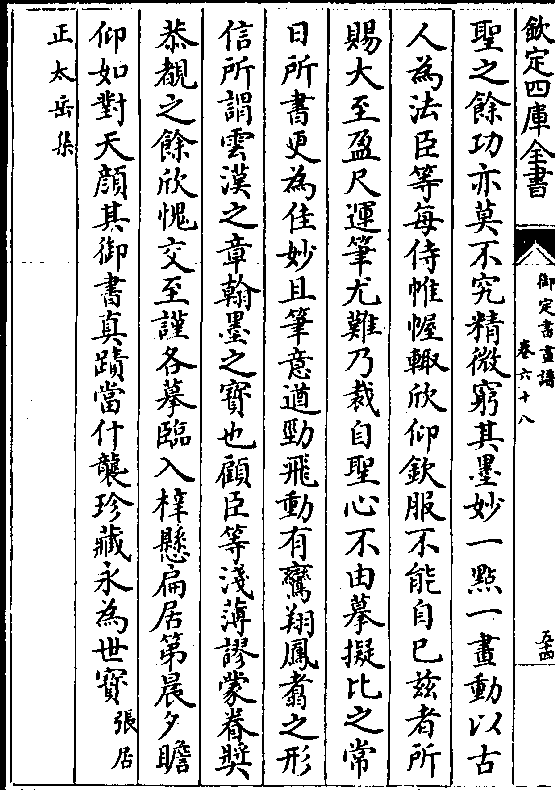 欽定四庫全書
御定書畫譜
卷六十八
五古
聖之餘功亦莫不究精微窮其墨妙一點一畫動以古
人為法臣等每侍帷幄輙欣仰欽服不能自已兹者所
賜大至盈尺運筆尤難乃裁自聖心不由摹擬比之常
日所書更為佳妙且筆意遒勁飛動有鸞翔鳳翥之形
信所謂雲漢之章翰墨之寳也顧臣等淺薄謬蒙眷奬
恭覩之餘欣愧交至謹各摹臨入梓懸扁居第晨夕瞻
仰如對天顔其御書真蹟當什襲珍藏永為世寳張居
正太岳集